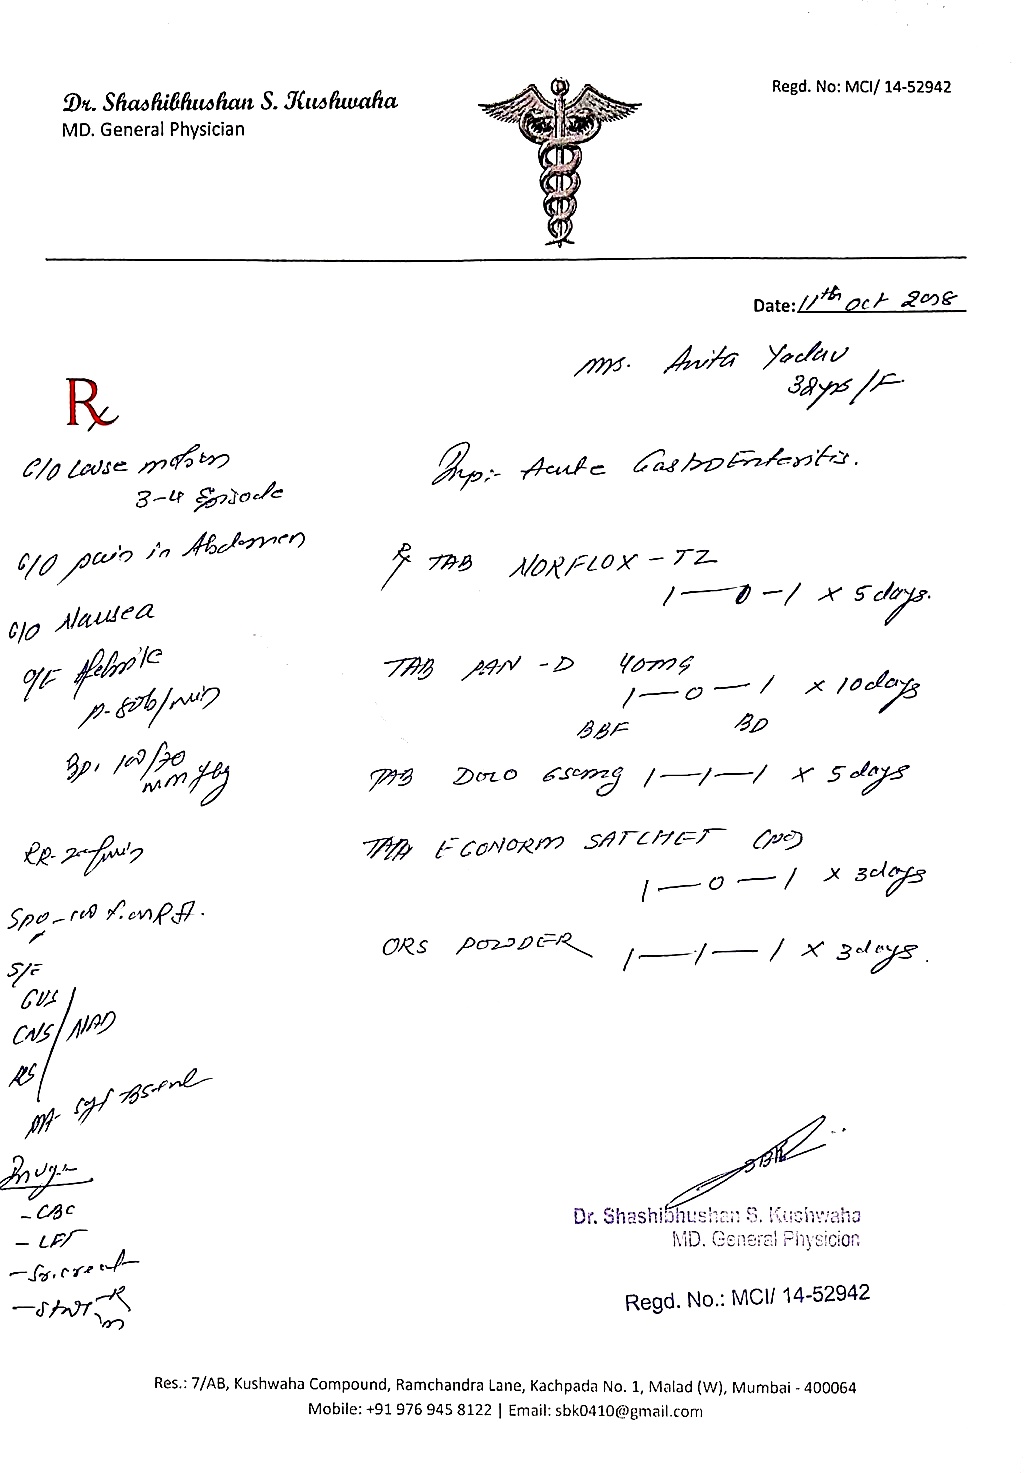 Dr. Shashibhushan S. Kushwaha
MD. General Physician
Regd. No: MCI/ 14-52942
Date: 11th Oct 2018
Ms. Anita Yadav
32yrs/F
Rx
C/O Loose motions
3-4 Episode
C/O pain in Abdomen
C/O Nausea
O/E Afebrile
P- 80b/min
BP. 100/70
mm Hg
RR- 20/min
SpO2 - 100 %. on RA.
S/E
CVS
CNS NAD
RS
PA-
Invg:-
- CBC
- LFT
- Sr. creat
- Stool R
m
Imp:- Acute GastroEnteritis.
Rx TAB NORFLOX - TZ
1 — 0 — 1 x 5 days.
TAB PAN - D 40mg
1 — 0 — 1 x 10 days
BBF BD
TAB DOLO 650mg 1 — 1 — 1 x 5 days
ECONORM SATCHET (PO)
1 — 0 — 1 x 3 days
ORS POWDER 1 — 1 — 1 x 3 days.
SBK
Dr. Shashibhushan S. Kushwaha
MD. General Physician
Regd. No.: MCI/ 14-52942
Res.: 7/AB, Kushwaha Compound, Ramchandra Lane, Kachpada No. 1, Malad (W), Mumbai - 400064
Mobile: +91 976 945 8122 | Email: sbk0410@gmail.com